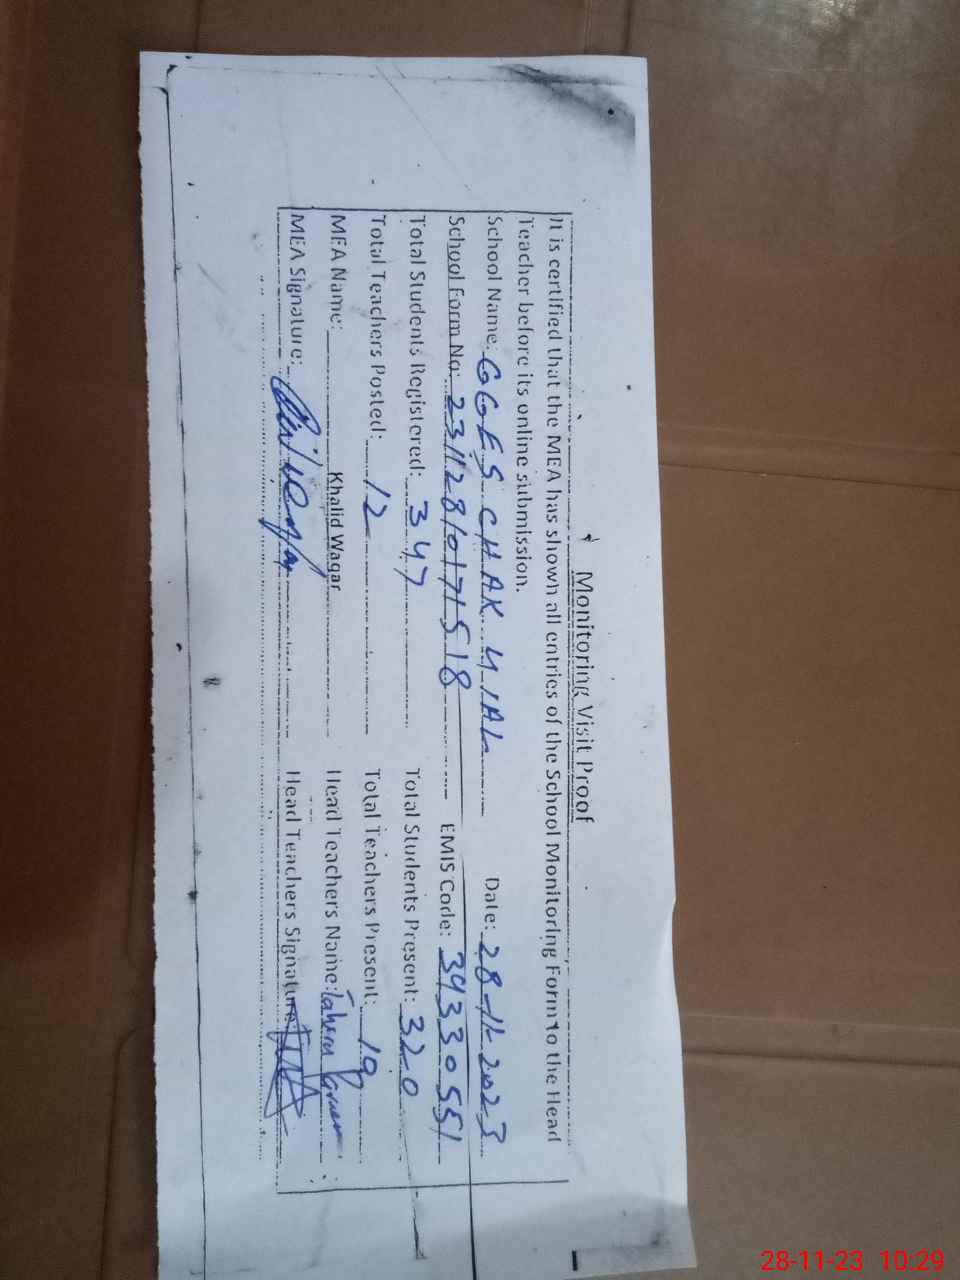 Monitoring Visit Proof
It is certified that the MEA has shown all entries of the School Monitoring Form to the Head
Teacher before its online submission.
School Name: GGES CHAK 41AL Date: 28-11-2023
School Form No: 23112810171518 EMIS Code: 39330551
Total Students Registered: 347 Total Students Present: 320
Total Teachers Posted: 12 Total Teachers Present:
MEA Name: Khalid Waqar Head Teachers Name: Tahera
MEA Signature: Head Teachers Signature:
28-11-23 10:29